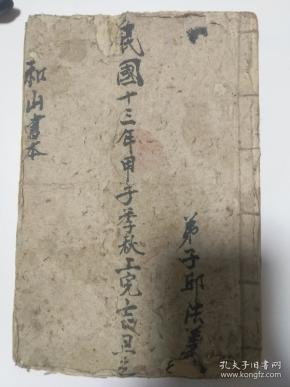 弟子邱法
民國十三年甲子季秋工完
和山書本
孔夫子旧书网